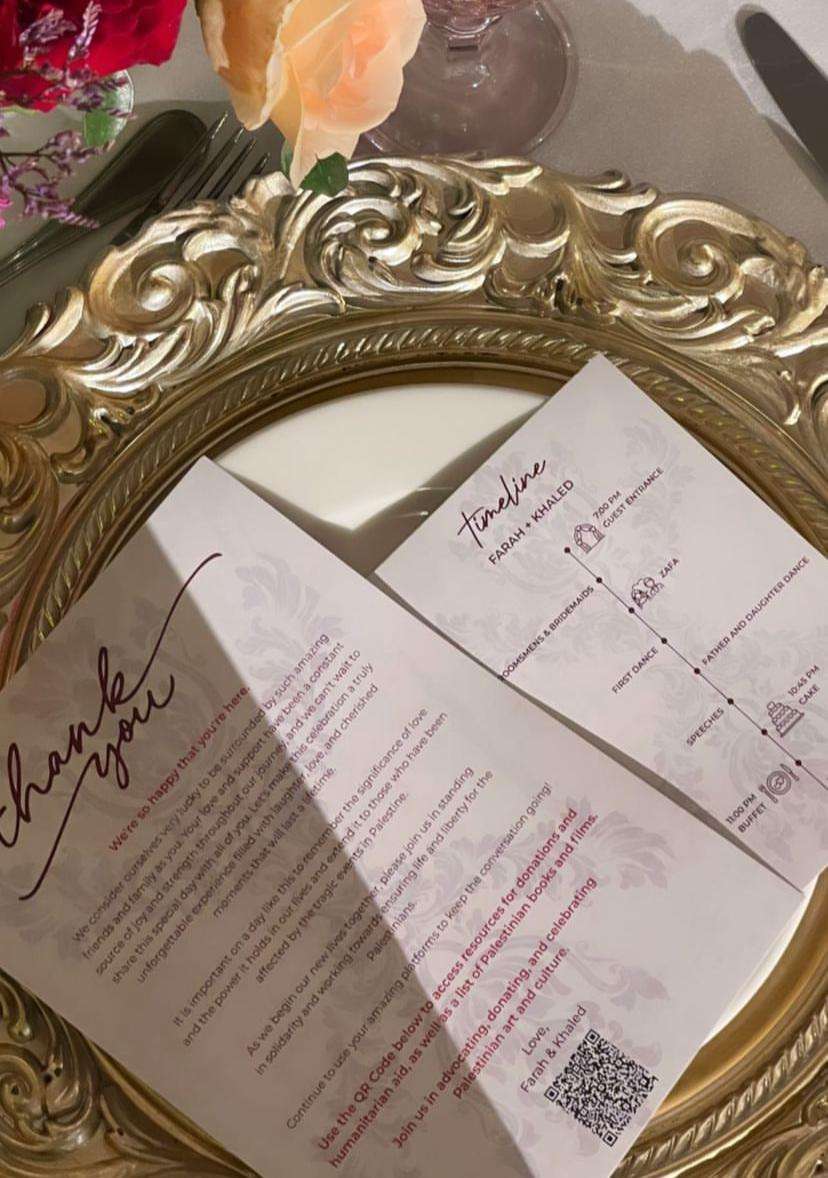 thank
you
We're so happy that you're here.
We consider ourselves very lucky to be surrounded by such amazing
friends and family as you. Your love and support have been a constant
source of joy and strength throughout our journey, and we can't wait to
share this special day with all of you. Let's make this celebration a truly
unforgettable experience filled with laughter, love, and cherished
moments that will last a lifetime.
It is important on a day like this to remember the significance of love
and the power it holds in our lives and extend it to those who have been
affected by the tragic events in Palestine.
As we begin our new lives together, please join us in standing
in solidarity and working towards ensuring life and liberty for the
Palestinians.
Continue to use your amazing platforms to keep the conversation going!
Use the QR Code below to access resources for donations and
humanitarian aid, as well as a list of Palestinian books and films.
Join us in advocating, donating, and celebrating
Palestinian art and culture.
Love,
Farah & Khaled
timeline
FARAH + KHALED
7:00 PM
GUEST ENTRANCE
OOMSMENS & BRIDEMAIDS
ZAFA
FIRST DANCE
FATHER AND DAUGHTER DANCE
SPEECHES
10:45 PM
CAKE
11:00 PM
BUFFET